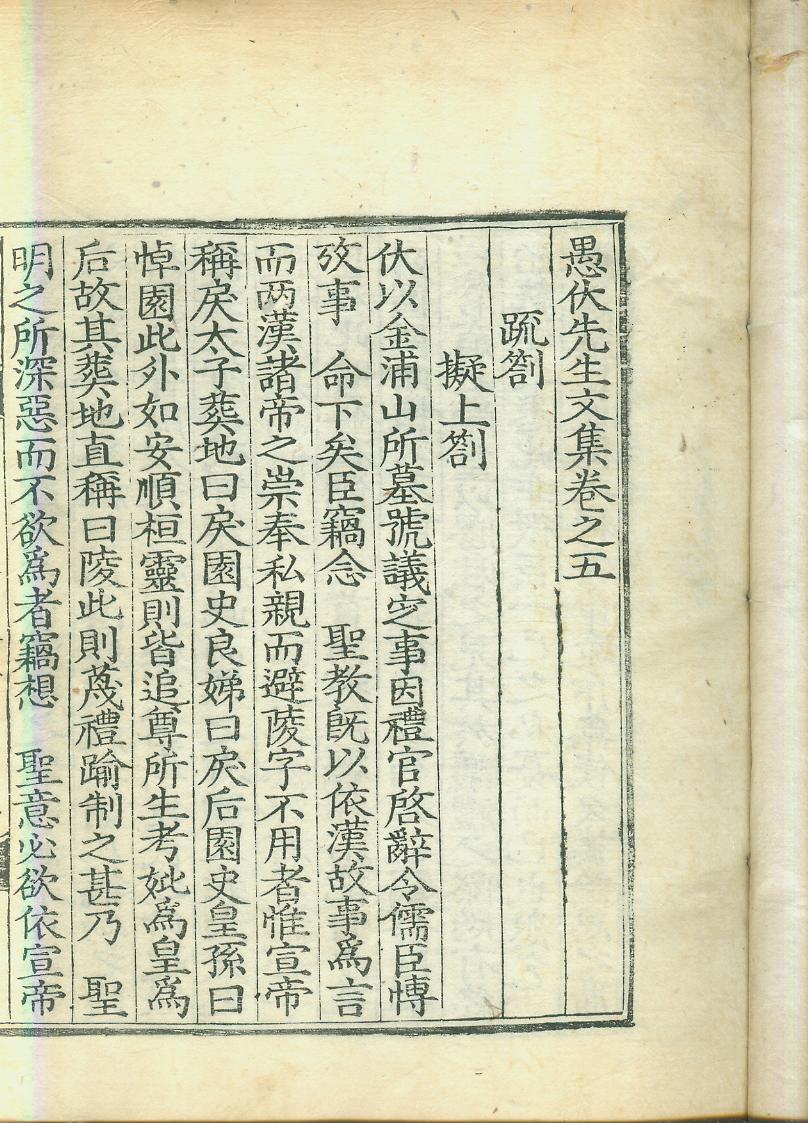 愚伏先生文集卷之五
疏劄
擬上劄
伏以金浦山所墓號議㝎事因禮官啓辭令儒臣愽
攷事　命下矣臣竊念　聖教旣以依漢故事爲言
而两漢諸帝之崇奉私親而避陵字不用者惟宣帝
稱戾太子葬地曰戾園史良娣曰戾后園史皇孫曰
悼園此外如安順桓靈則皆追尊所生考妣爲皇爲
后故其葬地直稱曰陵此則蔑禮踰制之甚乃　聖
明之所深惡而不欲爲者竊想　聖意必欲依宣帝